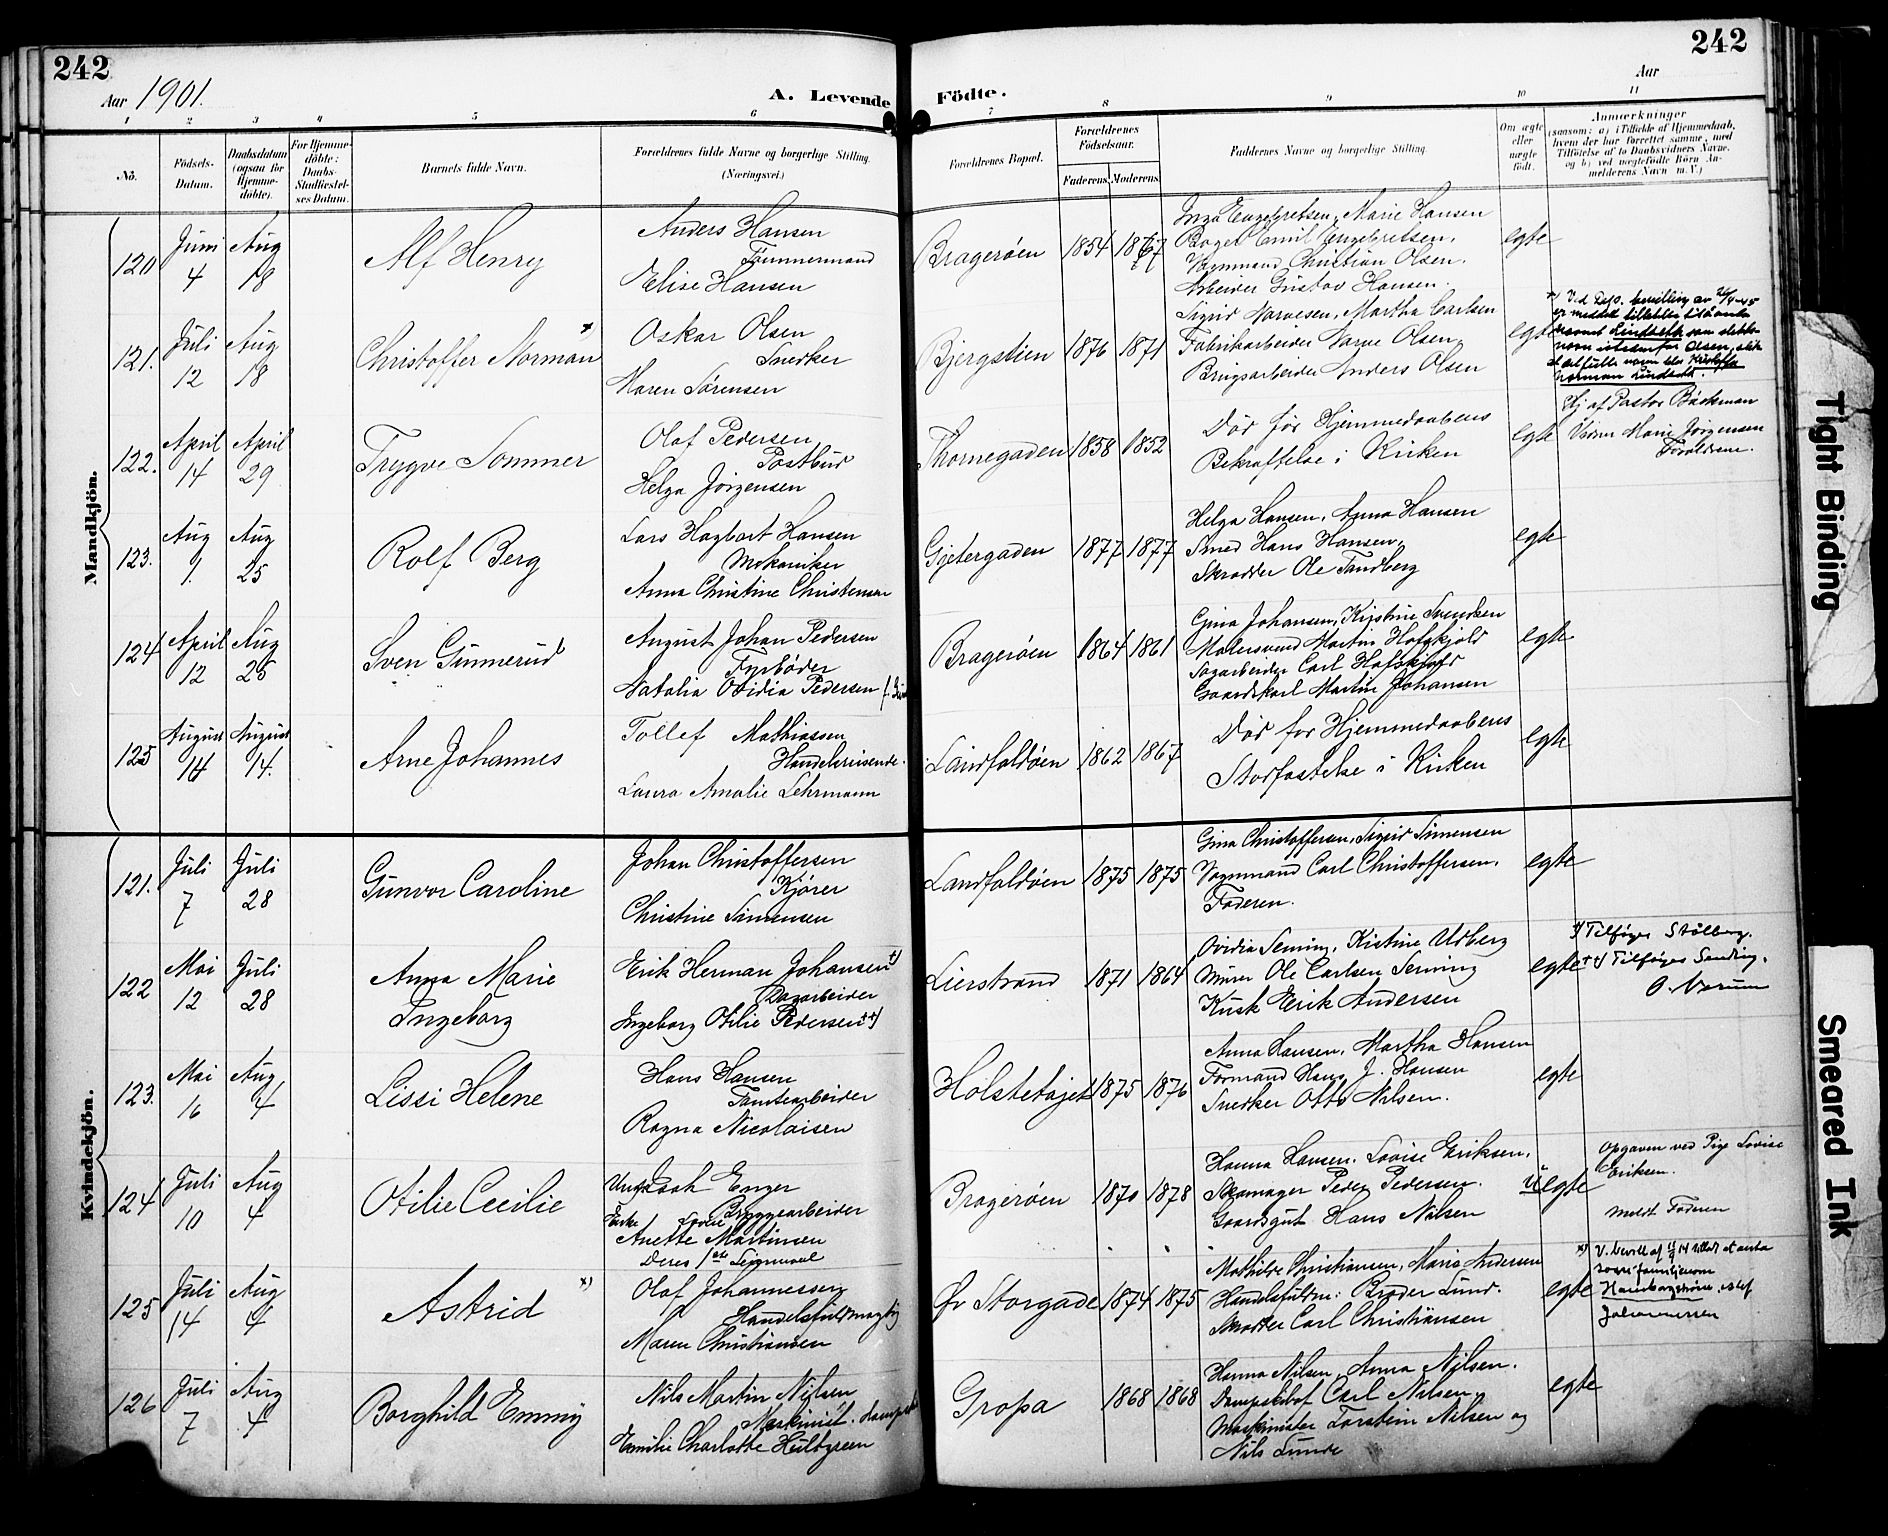 242
242
Aar 1901.
A. Levende Födte.
Aar
1 2 3 4 5 6 7 8 9 10 11
No.
Födsels-Datum.
Daabsdatum (ogsaa for Hjemme-döbte).
For Hjemme-döbte: Daabs-Stadfæstel-ses Datum.
Barnets fulde Navn.
Forældrenes fulde Navne og borgerlige Stilling. (Næringsvei.)
Forældrenes Bopæl.
Forældrenes Födselsaar.
Faderens. Moderens.
Faddernes Navne og borgerlige Stilling.
Om ægte eller uægte födt.
Anmærkninger
(saasom: a) i Tilfælde af Hjemmedaab, hvem der har forrettet samme, med Tilföielse af to Daabsvidners Navne, og b) ved uegtefödte Börn An-melderens Navn m. V.)
Mandkjön.
120 Juni 4 Aug 18 Alf Henry
Anders Hansen
Tømmermand
Elise Hansen
Bragerøen 1854 1867
Inga Engebretsen, Marie Hansen
Bager Emil Engebretsen,
Vognmand Christian Olsen.
Arbeider Gustav Hansen.
egte
121. Juli 12 Aug 18 Christoffer Norman x
Oskar Olsen
Snedker
Maren Sørensen
Bjergstien 1876 1871
Sigrid Narvesen, Martha Carlsen
Fabrikarbeider Narve Olsen,
Brugsarbeider Anders Olsen
egte
x) Ved Dep. bevilling av 26/4-45
er meddelt tillatelse til å anta
navnet Lindbekk som slekts-
navn istedenfor Olsen, slik
at det fulle navn blir Kristoffer
Norman Lindbekk.
122. April 14 April 29 Trygve Sommer
Olaf Pedersen
Postbud
Helga Jörgensen
Thornegaden 1858 1852
Död før Hjemmedaabens
Bekræftelse i Kirken
egte
Hj af Pastor Bäckman
Vidner Marie Jørgensen
Forældrene.
123. Aug 1. Aug 25 Rolf Berg
Lars Hagbart Hansen
Mekaniker
Anna Christine Christensen
Gjetergaden 1877 1877
Helga Hansen, Anna Hansen
Smed Hans Hansen,
Skrædder Ole Tandberg
egte
124 April 12 Aug 25 Sven Gunnerud
August Johan Pedersen
Fyrbøder
Natalia Ovidia Pedersen
Bragerøen 1864 1861
Gina Johansen, Kirstine Svendsen
Malersvend Martin Hofgkjold
Sagarbeider Carl Hafskjold
Gaardskarl Martin Johansen
egte
125 August 14 August 14. Arne Johannes
Tollef Mathiassen
Handelsreisende.
Laura Amalie Lehrmann
Landfaldøen 1862 1867
Död før Hjemmedaabens
Stadfæstelse i Kirken
egte
Kvindekjön.
121. Juli 7 Juli 28 Gunvor Caroline
Johan Christoffersen
Kjører
Christine Simensen
Landfaldøen 1875 1875
Gina Christoffersen, Sigrid Simensen
Vognmand Carl Christoffersen.
Faderen.
egte
122 Mai 12 Juli 28 Anna Marie Ingeborg
Erik Herman Johansen +)
Dagarbeider
Ingeborg Otilie Pedersen ++)
Lierstrand 1871 1864
Ovidia Semring, Kistine Udberg
Murer Ole Carlsen Semring
Kusk Erik Andersen
egte
+) Tilføyes Stølberg.
++) Tilføyes Sending.
O. Verum
123. Mai 16 Aug 4 Lissi Helene
Hans Hansen
Tomtearbeider
Ragna Nicolaisen
Holstetøjet 1875 1876
Anna Hansen, Martha Hansen
Formand Hans J. Hansen
Snedker Otto Nilsen.
egte
124 Juli 10 Aug 4 Otilie Cecilie
Ungk. Isak Enger
Bryggearbeider
Enke Lovise
Anette Martinsen
Deres 1ste Leiermaal
Bragerøen 1870 1878
Hanna Hansen. Lovise Eriksen.
Skomager Peder Pedersen.
Gaardsgut Hans Nilsen
uegte
Opgaven ved Pige Lovise
Eriksen.
meldt Faderen
125 Juli 14 Aug 4 Astrid x)
Olaf Johannessen
Handelsfuldmægtig
Maren Christiansen
Øv Storgade 1874 1875
Mathilde Christiansen, Marie Andersen
Handelsfuldm: Brøder Lund.
Skrædder Carl Christiansen
egte
x) V. bevill af 11/9 14 tillat at anta
som familienavn
Hamborgstrøm, istf
Johannessen
126 Juli 7 Aug 4 Borghild Emmy
Nils Martin Nilsen
Maskinist
Emilie Charlotte Hultgreen
Gropa 1868 1868
Hanna Nilsen, Anna Nilsen.
Dampskibsf Carl Nilsen,
Maskinister Torstein Nilsen og
Nils Lunde
egte
Tight Binding
Smeared Ink